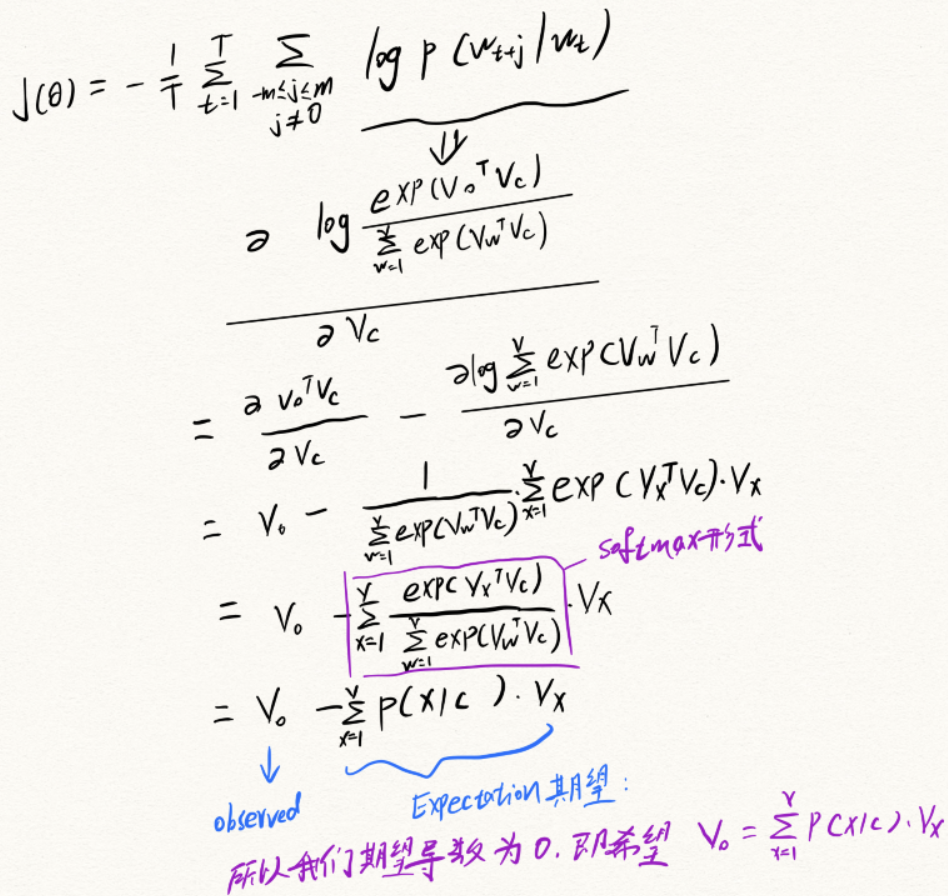 J(θ) = - 1/T Σ_{t=1}^{T} Σ_{-m≤j≤m, j≠0} log p (w_{t+j} | w_t)
⇓
∂ log exp(V_o^T V_c) / Σ_{w=1}^{V} exp(V_w^T V_c)
∂ V_c
= ∂ V_o^T V_c / ∂ V_c - ∂ log Σ_{w=1}^{V} exp(V_w^T V_c) / ∂ V_c
= V_o - 1 / Σ_{w=1}^{V} exp(V_w^T V_c) · Σ_{x=1}^{V} exp(V_x^T V_c) · V_x
softmax形式
= V_o - Σ_{x=1}^{V} exp(V_x^T V_c) / Σ_{w=1}^{V} exp(V_w^T V_c) · V_x
= V_o - Σ_{x=1}^{V} p(x|c) · V_x
observed
Expectation 期望:
所以我们期望导数为0. 即希望 V_o = Σ_{x=1}^{V} P(x|c) · V_x